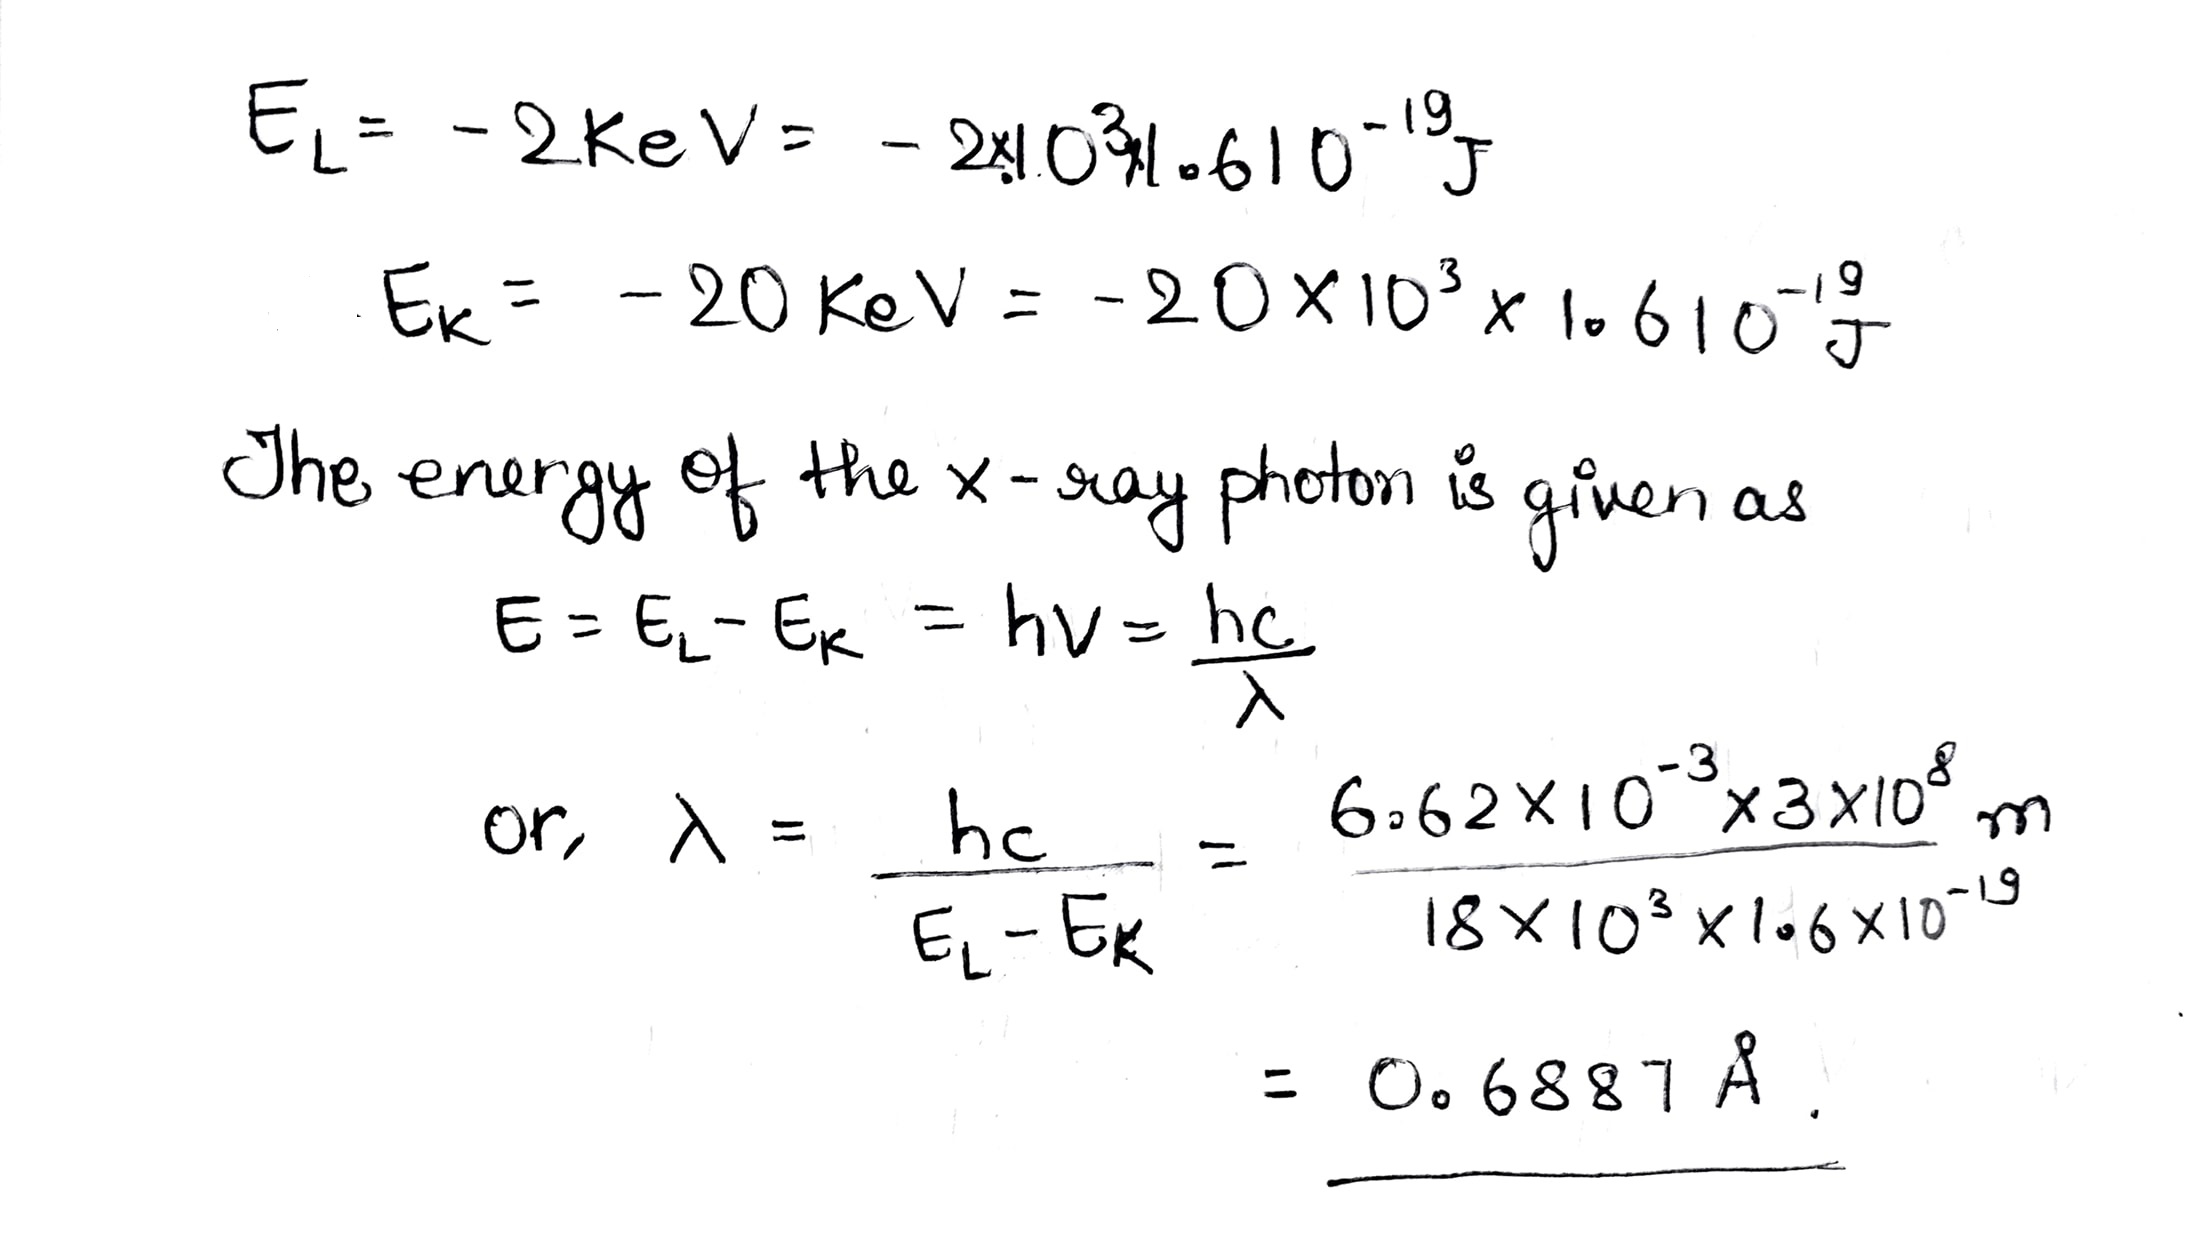 E_L = - 2KeV = - 2×10³×1.610⁻¹⁹J
E_K = - 20 KeV = - 20 × 10³ × 1.610⁻¹⁹J
The energy of the x-ray photon is given as
E = E_L - E_K = hν = hc/λ
or, λ = hc/(E_L - E_K) = 6.62×10⁻³×3×10⁸ m/(18×10³×1.6×10⁻¹⁹)
= 0.6887 Å.